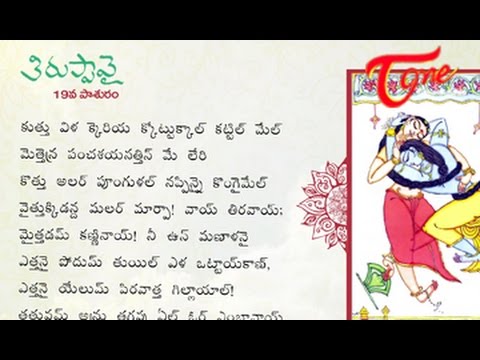 తిరుప్పావై
19వ పాశురం
Tone
కుత్తు విళ క్కెరియ క్కోట్టుక్కాల్ కట్టిల్ మేల్
మెత్తెన్ర పంచశయనత్తిన్ మే లేరి
కొత్తు అలర్ పూంగుళల్ నప్పిన్నై కొంగైమేల్
వైత్తుక్కిడన్ద మలర్ మార్పా! వాయ్ తిరవాయ్;
మైత్తడమ్ కణ్ణినాయ్! నీ ఉన్ మణాళనై
ఎత్తనై పోదుమ్ తుయిల్ ఎళ ఒట్టాయ్‌కాణ్,
ఎత్తనై యేలుమ్ పిరవాత్త గిల్లాయాల్!
తత్తువమ్ అన్రు తగవు ఏల్ ఓర్ ఎంబావాయ్